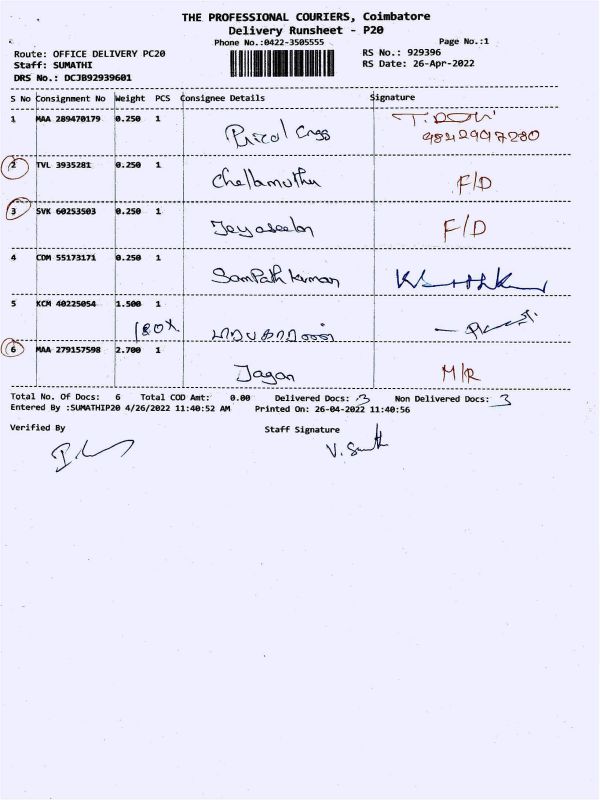 THE PROFESSIONAL COURIERS, Coimbatore
Delivery Runsheet - P20
Phone No.:0422-3505555 Page No.:1
Route: OFFICE DELIVERY PC20 RS No.: 929396
Staff: SUMATHI RS Date: 26-Apr-2022
DRS No.: DCJB92939601
S No Consignment No Weight PCS Consignee Details Signature
1 MAA 289470179 0.250 1
2 TVL 3935281 0.250 1 Chellamuthu F/D
3 SVK 60253503 0.250 1 Jeyaseelan F/D
4 COM 55173171 0.250 1 Sampath kumar
5 KCM 40225054 1.500 1
1BOX
6 MAA 279157598 2.700 1 Jagan M/R
Total No. Of Docs: 6 Total COD Amt: 0.00 Delivered Docs: 3 Non Delivered Docs: 3
Entered By :SUMATHIP20 4/26/2022 11:40:52 AM Printed On: 26-04-2022 11:40:56
Verified By Staff Signature